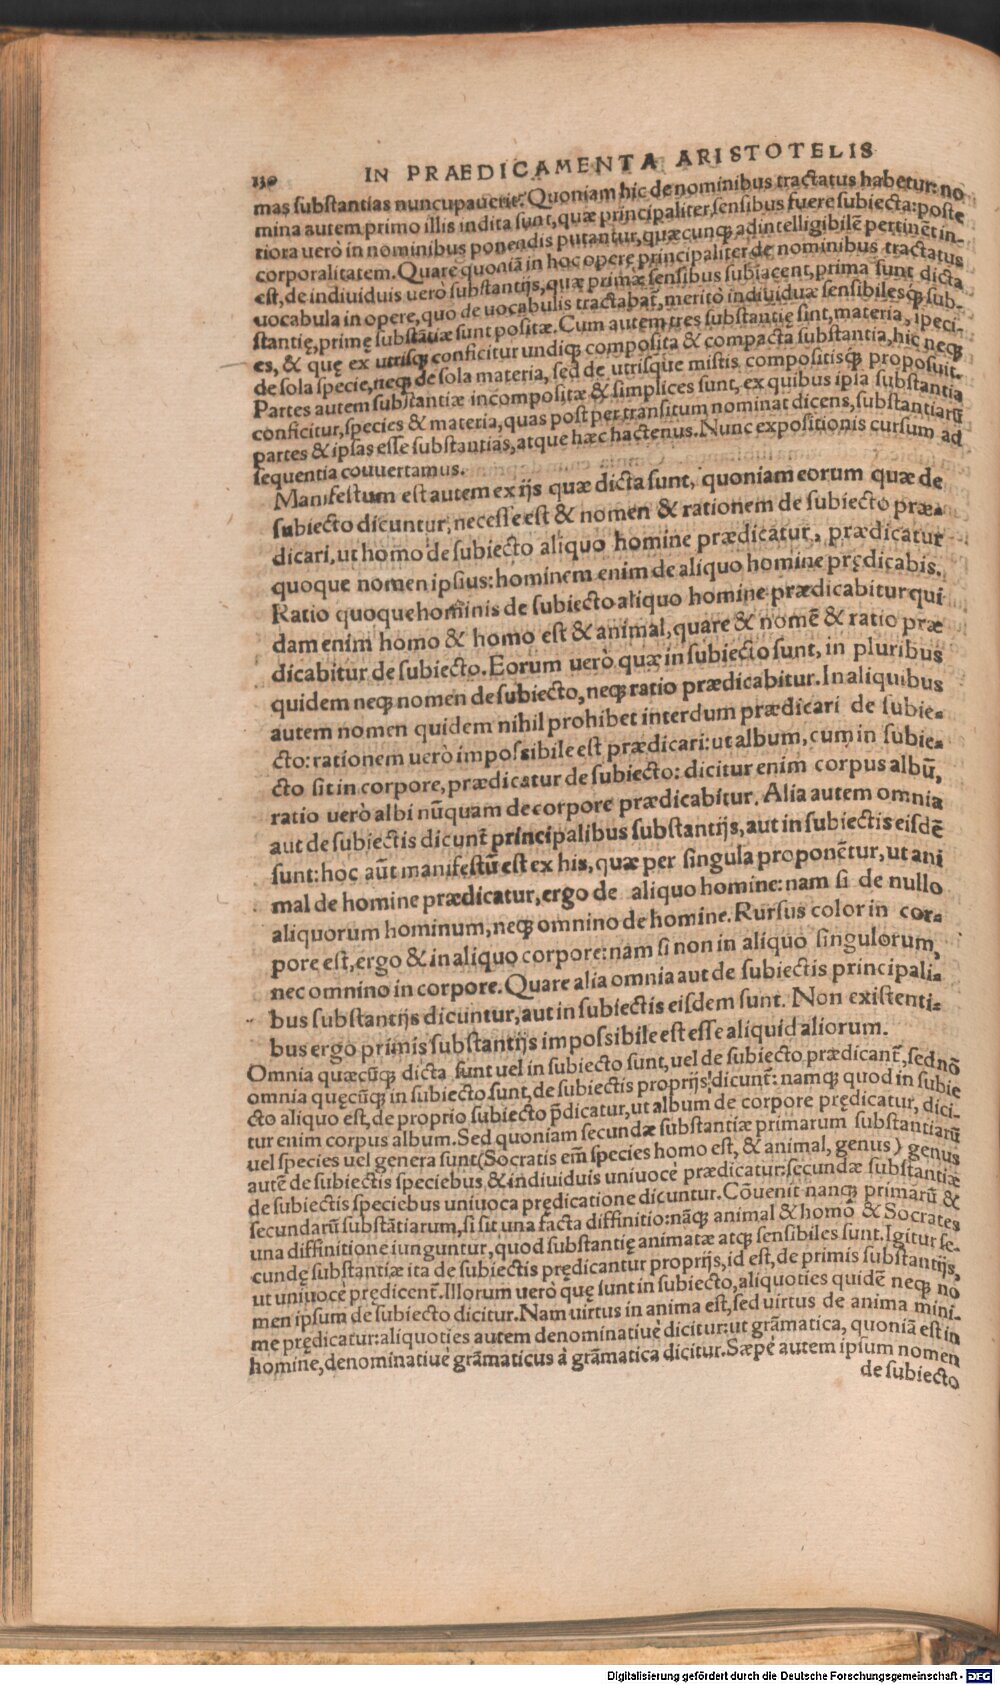 130 IN PRAEDICAMENTA ARISTOTELIS
mas substantias nuncupauerit. Quoniam hic de nominibus tractatus habetur: no
mina autem primo illis indita sunt, quæ principaliter sensibus fuere subiecta: poste
riora uerò in nominibus ponendis putantur, quæcunqꝫ ad intelligibilẽ pertinẽt in-
corporalitatem. Quare quoniã in hoc opere principaliter de nominibus tractatus
est, de indiuiduis uerò substantijs, quæ primæ sensibus subiacent, prima sunt dicta
uocabula in opere, quo de uocabulis tractabat̃, meritò indiuiduæ sensibilesqꝫ sub-
stantię, primę substãtiæ sunt positæ. Cum autem tres substantię sint, materia, speci-
es, & quę ex utrisqꝫ conficitur undiqꝫ composita & compacta substantia, hic neqꝫ
de sola specie, neqꝫ de sola materia, sed de utrisque mistis compositisqꝫ proposuit.
Partes autem substantiæ incompositæ & simplices sunt, ex quibus ipsa substantia
conficitur, species & materia, quas post per transitum nominat dicens, substantiarũ
partes & ipsas esse substantias, atque hæc hactenus. Nunc expositionis cursum ad
sequentia couuertamus.
Manifestum est autem ex ijs quæ dicta sunt, quoniam eorum quæ de
subiecto dicuntur, necesse est & nomen & rationem de subiecto præ-
dicari, ut homo de subiecto aliquo homine prædicatur, prædicatur
quoque nomen ipsius: hominem enim de aliquo homine prędicabis.
Ratio quoque hominis de subiecto aliquo homine prædicabitur qui
dam enim homo & homo est & animal, quare & nomẽ & ratio præ
dicabitur de subiecto. Eorum uerò quæ in subiecto sunt, in pluribus
quidem neqꝫ nomen de subiecto, neqꝫ ratio prædicabitur. In aliquibus
autem nomen quidem nihil prohibet interdum prædicari de subie-
cto: rationem uerò impossibile est prædicari: ut album, cum in subie-
cto sit in corpore, prædicatur de subiecto: dicitur enim corpus albũ,
ratio uerò albi nũquam de corpore prædicabitur. Alia autem omnia
aut de subiectis dicunt̃ principalibus substantijs, aut in subiectis eisdẽ
sunt: hoc aũt manifestũ est ex his, quæ per singula proponẽtur, ut ani
mal de homine prædicatur, ergo de aliquo homine: nam si de nullo
aliquorum hominum, neqꝫ omnino de homine. Rursus color in cor-
pore est, ergo & in aliquo corpore: nam si non in aliquo singulorum,
nec omnino in corpore. Quare alia omnia aut de subiectis principali-
bus substantijs dicuntur, aut in subiectis eisdem sunt. Non existenti-
bus ergo primis substantijs impossibile est esse aliquid aliorum.
Omnia quæcũqꝫ dicta sunt uel in subiecto sunt, uel de subiecto prædicant̃, sed nõ
omnia quęcũqꝫ in subiecto sunt, de subiectis proprijs dicunt̃: namqꝫ quod in subie
cto aliquo est, de proprio subiecto p̃dicatur, ut album de corpore prędicatur, dici-
tur enim corpus album. Sed quoniam secundæ substantiæ primarum substantiarũ
uel species uel genera sunt (Socratis em̃ species homo est, & animal, genus) genus
autẽ de subiectis speciebus & indiuiduis uniuocè prædicatur: secundæ substantiæ
de subiectis speciebus uniuoca prędicatione dicuntur. Cõuenit nanqꝫ primarũ &
secundarũ substãtiarum, si sit una facta diffinitio: nãqꝫ animal & homo & Socrates
una diffinitione iunguntur, quod substantię animatæ atqꝫ sensibiles sunt. Igitur se-
cundę substantiæ ita de subiectis prędicantur proprijs, id est, de primis substantijs,
ut uniuocè prędicent̃. Illorum uerò quę sunt in subiecto, aliquoties quidẽ neqꝫ no
men ipsum de subiecto dicitur. Nam uirtus in anima est, sed uirtus de anima mini-
me prędicatur: aliquoties autem denominatiuè dicitur: ut grãmatica, quoniã est in
homine, denominatiuè grãmaticus à grãmatica dicitur. Sæpè autem ipsum nomen
de subiecto
Digitalisierung gefördert durch die Deutsche Forschungsgemeinschaft - DFG